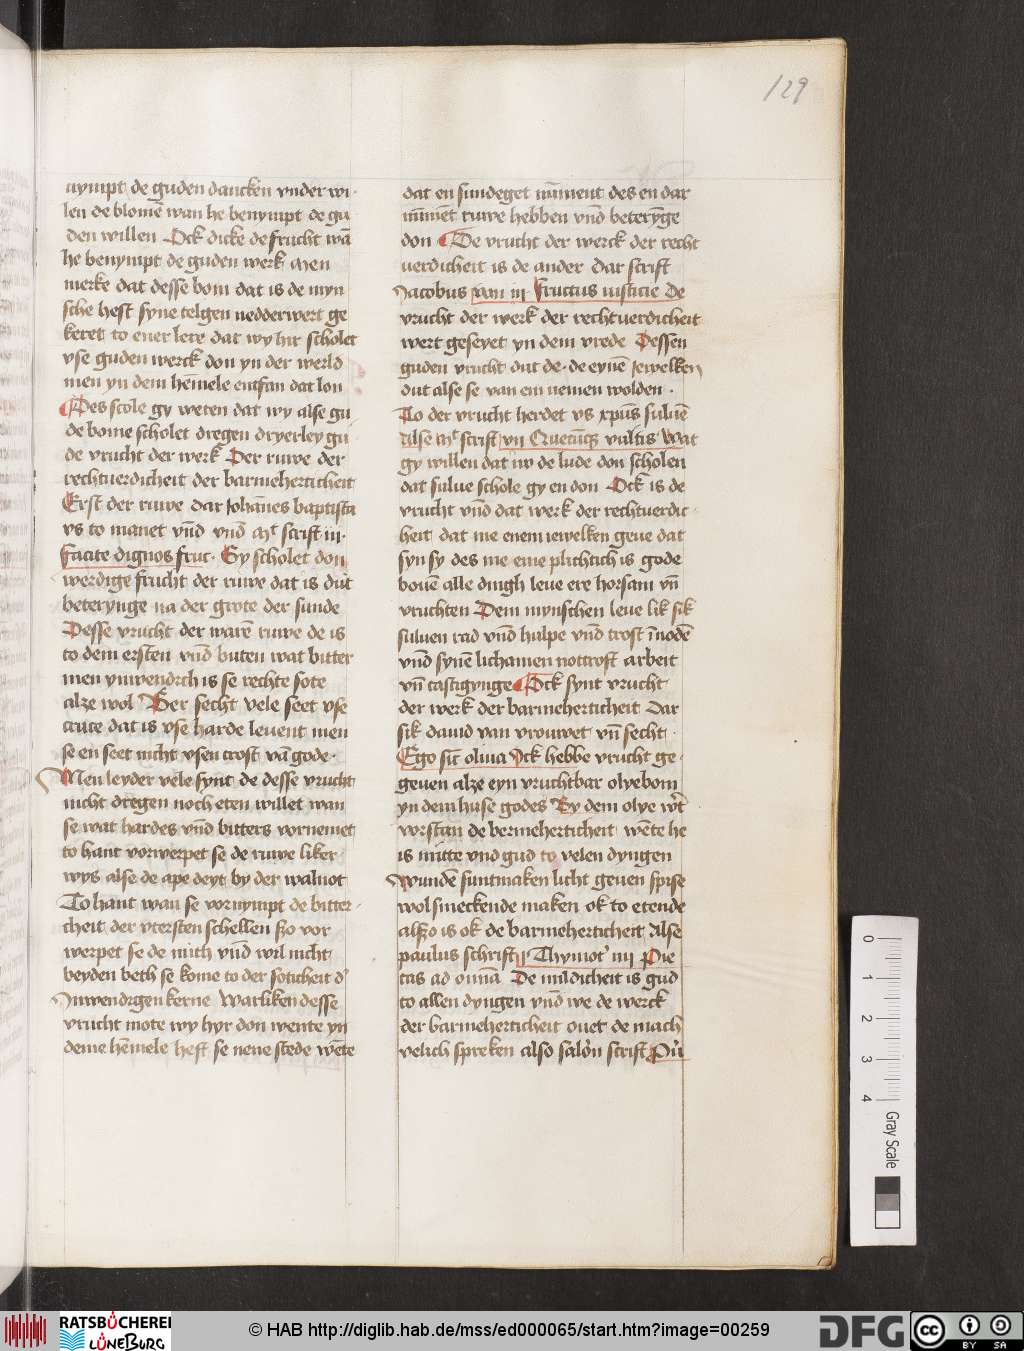 129
nympt de guden dancken vnder wi
len de blomē wan he benympt de gu
den willen Ock dicke de frucht wā
he benympt de guden werk Men
merke dat desse bom dat is de myn
sche heft syne telgen nedderwert ge
keret to ener lere dat wy hir scholet
vse guden werck don yn der werld
men yn dem hēmele entfan dat lon
Des scole gy weten dat wy alse gu
de bome scholet dregen dryerley gu
de vrucht der werk Der ruwe der
rechtuerdicheit der barmeherticheit
Erst der ruwe dar Johānes baptista
vs to manet vnd vnd mͭ scrift iij.
facite dignos fruc. Gy scholet don
werdige frucht der ruwe dat is dūt
beterynge na der grote der sunde
Desse vrucht der warē ruwe de is
to dem ersten vnd buten wat bitter
men ynwendich is se rechte sote
alze wol Der secht vele seet vse
cruce dat is vse harde leuent men
se en seet nicht vsen trost vā gode.
Men leyder vele synt de desse vrucht
nicht dregen noch eten willet wan
se wat hardes vnd bitters vornemet
to hant vorwerpet se de ruwe liker
wys alse de ape deyt by der walnot
To hant wan se vornympt de bitter
cheit der vtersten schellen szo vor
werpet se de mith vnd wil nicht
beyden beth se kome to der soticheit dͬ
Inwendigen kerne Warliken desse
vrucht mote wy hyr don wente yn
deme hēmele heft se nene stede wēte
dat en sundeget nūment des en dar
nūmēt ruwe hebben vnd beterȳge
don De vrucht der werck der recht
uerdicheit is de ander Dar scrift
Jacobus van iij. Fructus iusticie De
vrucht der werk der rechtuerdicheit
wert geseyet yn dem vrede Dessen
guden vrucht dut de. de eynē jewelken
dut alse se van em nemen wolden.
To der vrucht herdet vs xp̄us suluē
Alse mͭ scrift vij Quecūq vultis Wat
gy willen dat iw de lude don scholen
dat sulue schole gy en don Ock is de
vrucht vnd dat werk der rechtuerdic
heit dat me enem iewelken geue dat
syn sy des me eme plichtich is gode
bouē alle dingh leue ere horsam vn̄
vruchten Dem mynschen leue lik sik
suluen rad vnd hulpe vnd trost ī nodē
vnd synē lichamen nottrost arbeit
vn̄ castigynge Ock synt vrucht
der werk der barmeherticheit Dar
sik dauid van vrouwet vn̄ secht.
Ego sīt oliua Ick hebbe vrucht ge
geuen alze eyn vruchtbar olyebom
yn dem huse godes By dem olye wͬt
vorstan de bermeherticheit wēte he
is mitte vnd gud to velen dyngen
Wundē suntmaken licht geuen spise
wolsmeckende maken ok to etende
alszo is ok de barmeherticheit Alse
paulus schrift ij Thymotͬ iiij Pie
tas ad omīa De mildicheit is gud
to allen dyngen vnd we de werck
der barmeherticheit ouet de mach
velich spreken also salōn scrift Pūͬ
0 1 2 3 4 Gray Scale
RATSBÜCHEREI
LÜNEBURG
© HAB http://diglib.hab.de/mss/ed000065/start.htm?image=00259
DFG
CC BY SA